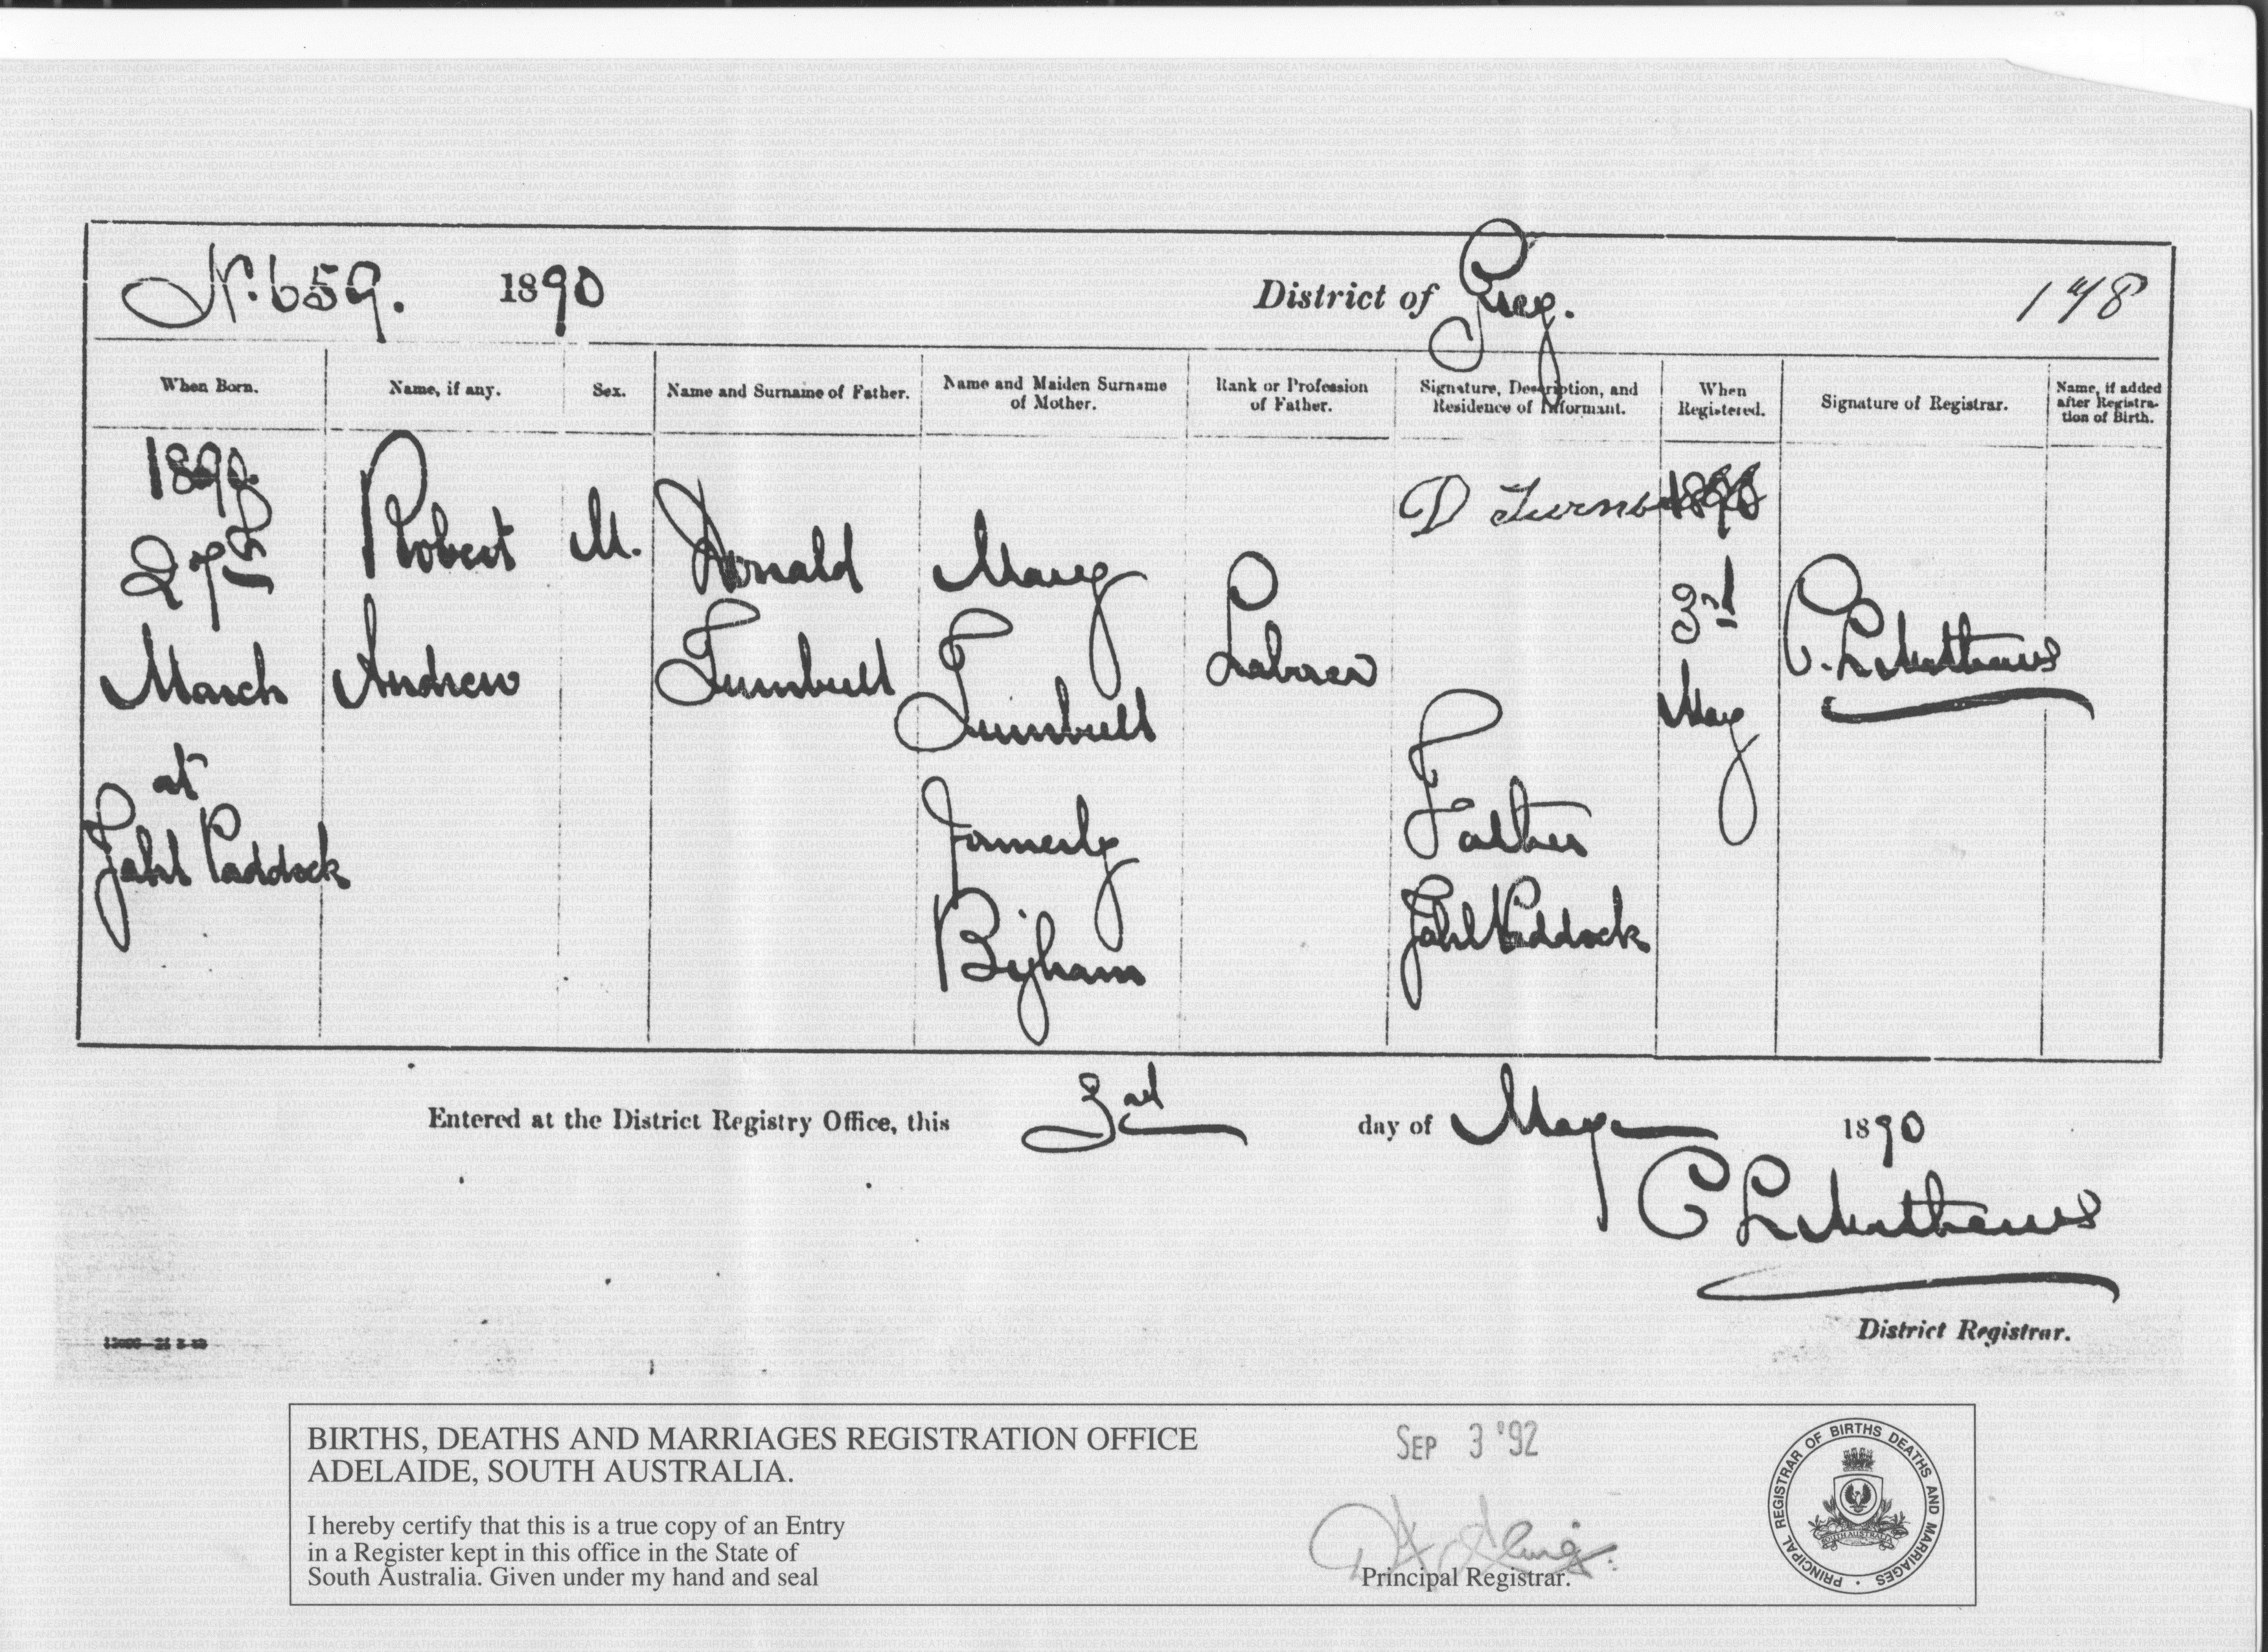 No. 659. 1890 District of Grey. 148
When Born. Name, if any. Sex. Name and Surname of Father. Name and Maiden Surname of Mother. Rank or Profession of Father. Signature, Description, and Residence of Informant. When Registered. Signature of Registrar. Name, if added after Registration of Birth.
1890.
27th
March
at
Jahl Paddock
Robert
Andrew
M.
Donald
Turnbull
Mary
Turnbull
formerly
Bigham
Labourer
D Turnbull
Father
Jahl Paddock
1890
3rd
May
C. L. Mathews
Entered at the District Registry Office, this 3rd day of May 1890
C L Mathews
District Registrar.
BIRTHS, DEATHS AND MARRIAGES REGISTRATION OFFICE
ADELAIDE, SOUTH AUSTRALIA.
I hereby certify that this is a true copy of an Entry
in a Register kept in this office in the State of
South Australia. Given under my hand and seal
SEP 3 '92
Principal Registrar.
PRINCIPAL REGISTRAR OF BIRTHS DEATHS AND MARRIAGES
SOUTH AUSTRALIA